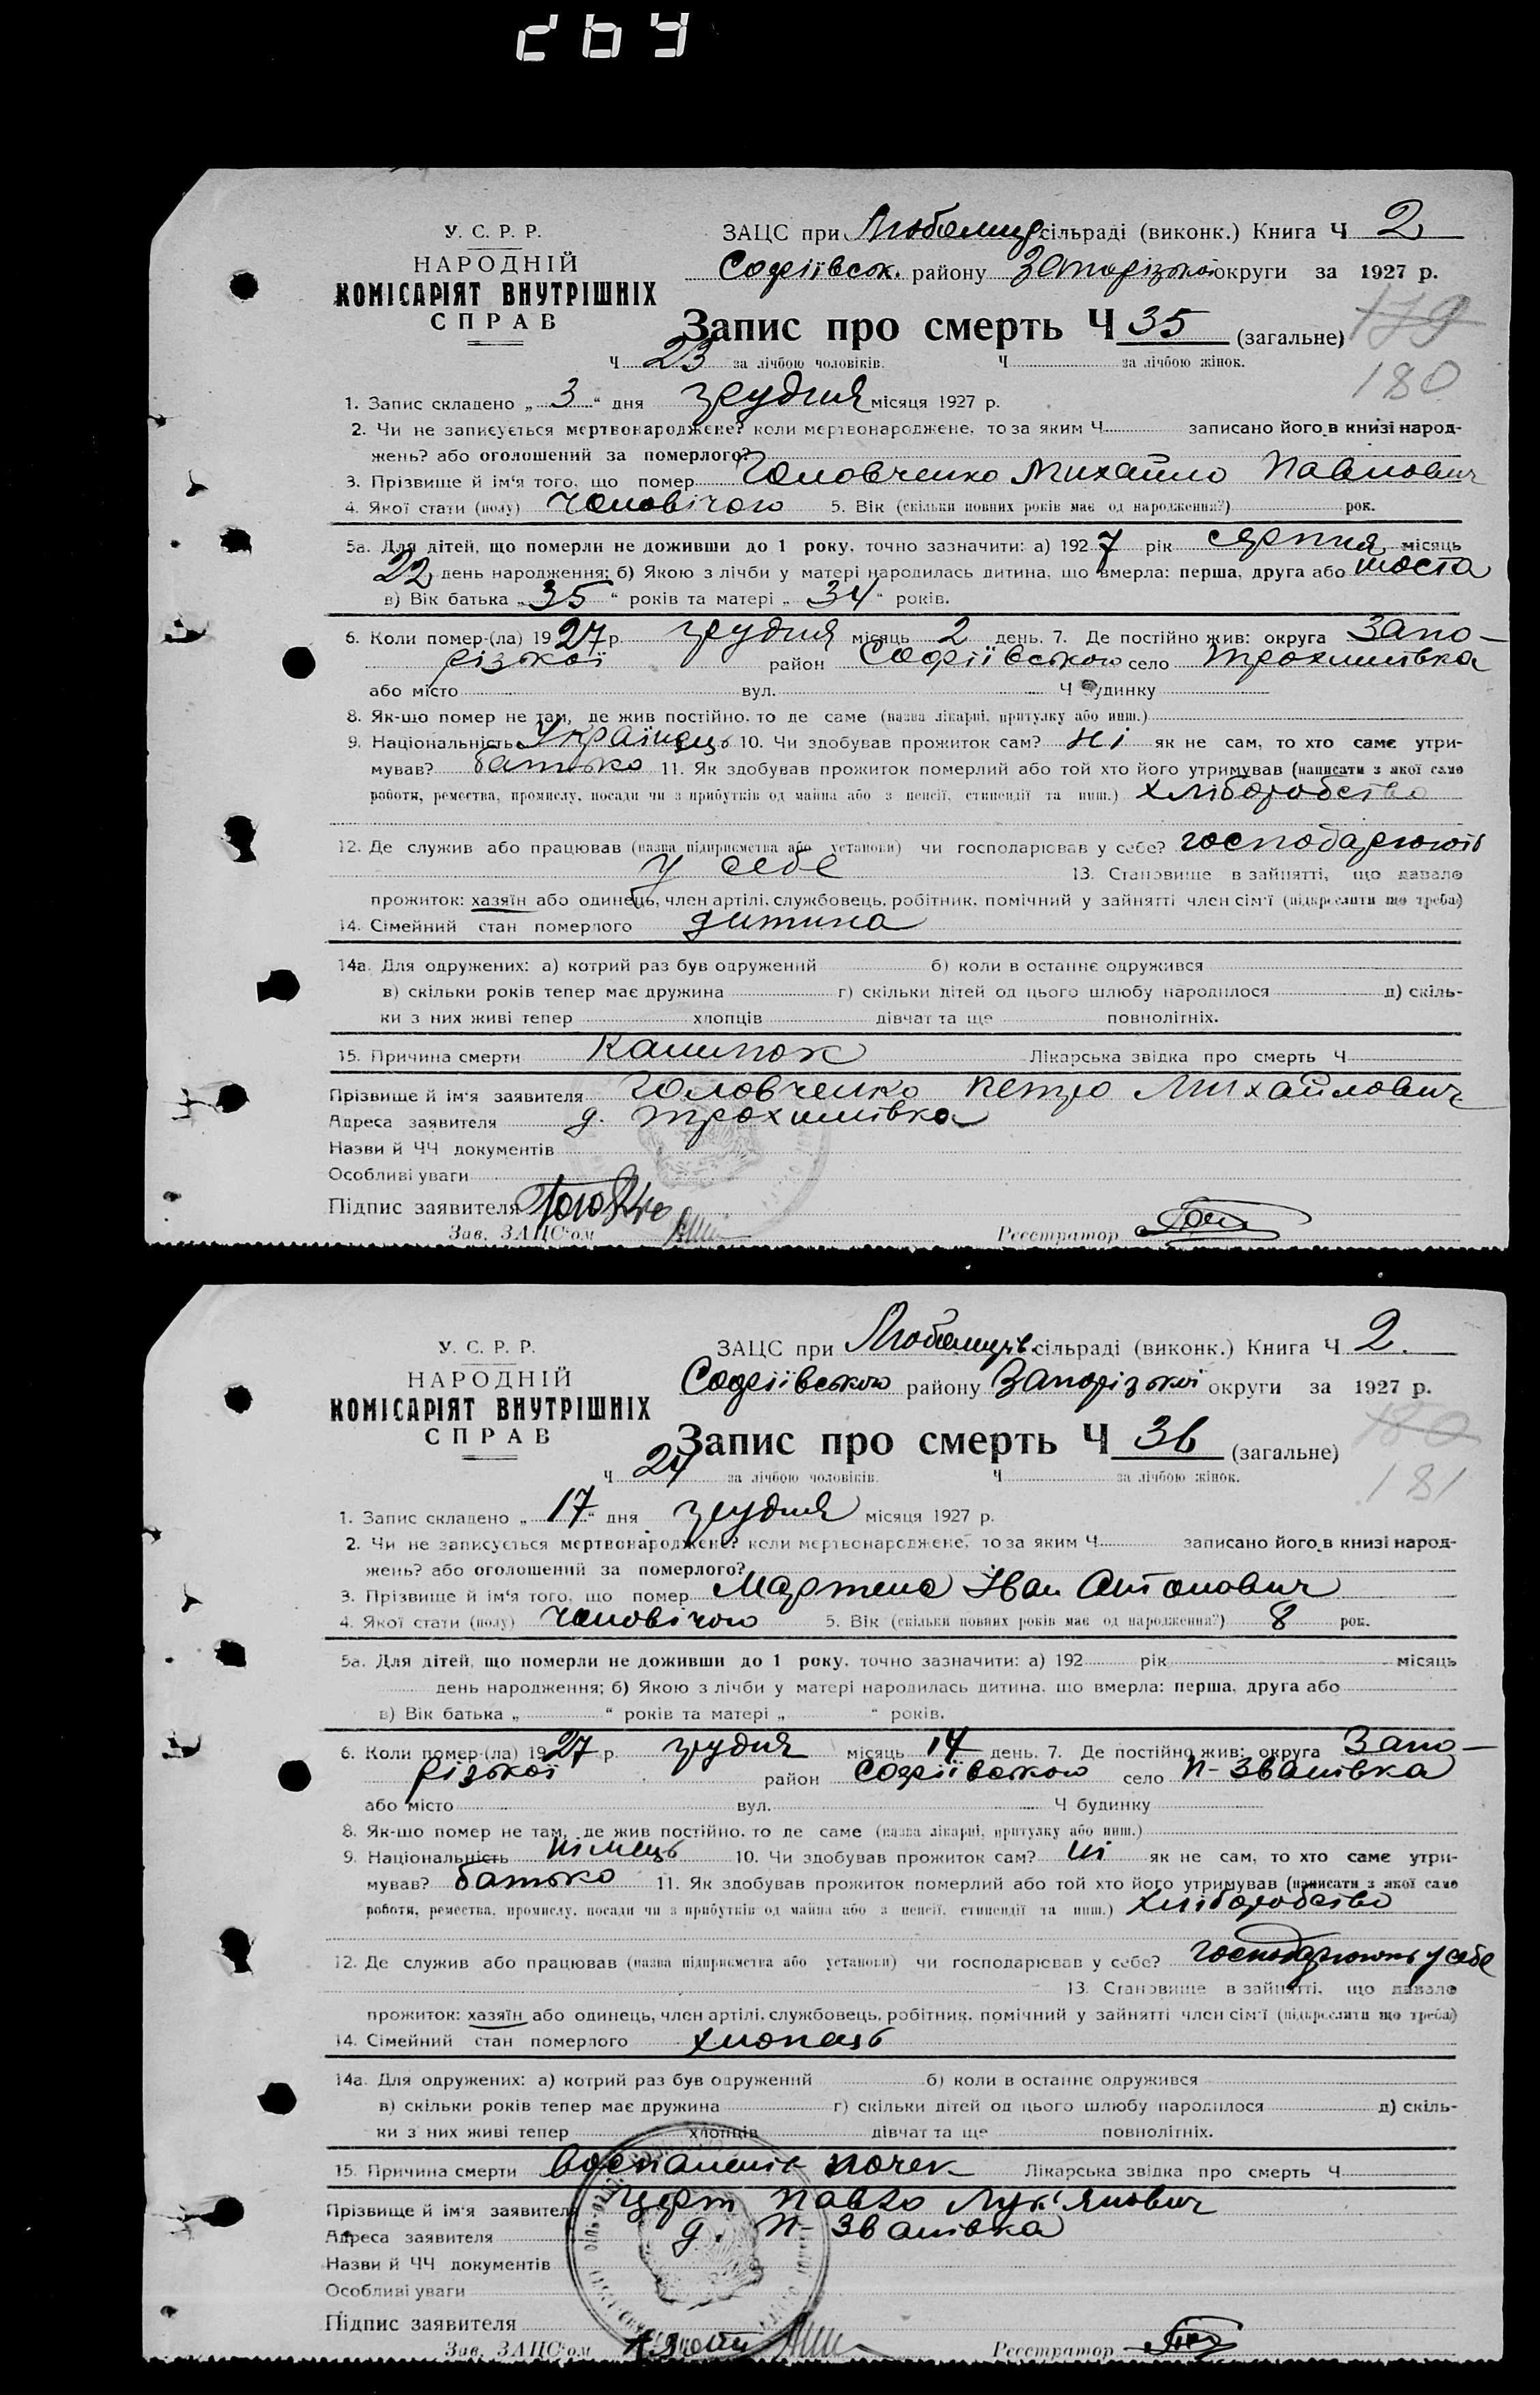 У. С. Р. Р.
НАРОДНІЙ
КОМІСАРІЯТ ВНУТРІШНІХ
СПРАВ
ЗАЦС при сільраді (виконк.) Книга Ч 2
Софіївськ. району Запорізької округи за 1927 р.
Запис про смерть Ч 35 (загальне) 179
Ч 23 за лічбою чоловіків. Ч за лічбою жінок.
180
1. Запис складено „ 3 “ дня грудня місяця 1927 р.
2. Чи не записується мертвонароджене? коли мертвонароджене, то за яким Ч записано його в книзі народ-
жень? або оголошений за померлого?
3. Прізвище й ім'я того, що помер Головченко Михайло Павлович
4. Якої стати (полу) чоловічого 5. Вік (скільки повних років має од народження?) рок.
5а. Для дітей, що померли не доживши до 1 року, точно зазначити: а) 1927 рік серпня місяць
22 день народження; б) Якою з лічби у матері народилась дитина, що вмерла: перша, друга або шоста
в) Вік батька „ 35 “ років та матері „ 34 “ років.
6. Коли помер (ла) 1927 р. грудня місяць 2 день. 7. Де постійно жив: округа Запо-
різької район Софіївського село Трохимівка
або місто вул. Ч будинку
8. Як-що помер не там, де жив постійно, то де саме (назва лікарні, притулку або инш.)
9. Національність Українець 10. Чи здобував прожиток сам? Ні як не сам, то хто саме утри-
мував? батько 11. Як здобував прожиток померлий або той хто його утримував (написати з якої саме
роботи, ремества, промислу, посади чи з прибутків од майна або з пенсії, стипендії та инш.) хліборобство
12. Де служив або працював (назва підприємства або установи) чи господарював у себе? господарюють
у себе 13. Становище в зайнятті, що давало
прожиток: хазяїн або одинець, член артілі, службовець, робітник, помічний у зайнятті член сім'ї (підкреслити що треба)
14. Сімейний стан померлого дитина
14а. Для одружених: а) котрий раз був одружений б) коли в останнє одружився
в) скільки років тепер має дружина г) скільки дітей од цього шлюбу народилося д) скіль-
ки з них живі тепер хлопців дівчат та ще повнолітніх.
15. Причина смерти Кашлюк Лікарська звідка про смерть Ч
Прізвище й ім'я заявителя Головченко Петро Михайлович
Адреса заявителя д. Трохимівка
Назви й ЧЧ документів
Особливі уваги
Підпис заявителя
Зав. ЗАЦС'ом Реєстратор
У. С. Р. Р.
НАРОДНІЙ
КОМІСАРІЯТ ВНУТРІШНІХ
СПРАВ
ЗАЦС при сільраді (виконк.) Книга Ч 2.
Софіївського району Запорізької округи за 1927 р.
Запис про смерть Ч 36 (загальне) 180
Ч 24 за лічбою чоловіків. Ч за лічбою жінок.
181
1. Запис складено „ 17 “ дня грудня місяця 1927 р.
2. Чи не записується мертвонароджене? коли мертвонароджене, то за яким Ч записано його в книзі народ-
жень? або оголошений за померлого?
3. Прізвище й ім'я того, що помер Мартенс Іван Антонович
4. Якої стати (полу) чоловічого 5. Вік (скільки повних років має од народження?) 8 рок.
5а. Для дітей, що померли не доживши до 1 року, точно зазначити: а) 192 рік місяць
день народження; б) Якою з лічби у матері народилась дитина, що вмерла: перша, друга або
в) Вік батька „ “ років та матері „ “ років.
6. Коли помер (ла) 1927 р. грудня місяць 14 день. 7. Де постійно жив: округа Запо-
різької район Софіївського село П-Званівка
або місто вул. Ч будинку
8. Як-що помер не там, де жив постійно, то де саме (назва лікарні, притулку або инш.)
9. Національність німець 10. Чи здобував прожиток сам? Ні як не сам, то хто саме утри-
мував? батько 11. Як здобував прожиток померлий або той хто його утримував (написати з якої саме
роботи, ремества, промислу, посади чи з прибутків од майна або з пенсії, стипендії та инш.) хліборобство
12. Де служив або працював (назва підприємства або установи) чи господарював у себе? господарюють у себе
13. Становище в зайнятті, що давало
прожиток: хазяїн або одинець, член артілі, службовець, робітник, помічний у зайнятті член сім'ї (підкреслити що треба)
14. Сімейний стан померлого хлопець
14а. Для одружених: а) котрий раз був одружений б) коли в останнє одружився
в) скільки років тепер має дружина г) скільки дітей од цього шлюбу народилося д) скіль-
ки з них живі тепер хлопців дівчат та ще повнолітніх.
15. Причина смерти Лікарська звідка про смерть Ч
Прізвище й ім'я заявителя Павло Лук'янович
Адреса заявителя д. П-Званівка
Назви й ЧЧ документів
Особливі уваги
Підпис заявителя
Зав. ЗАЦС'ом Реєстратор